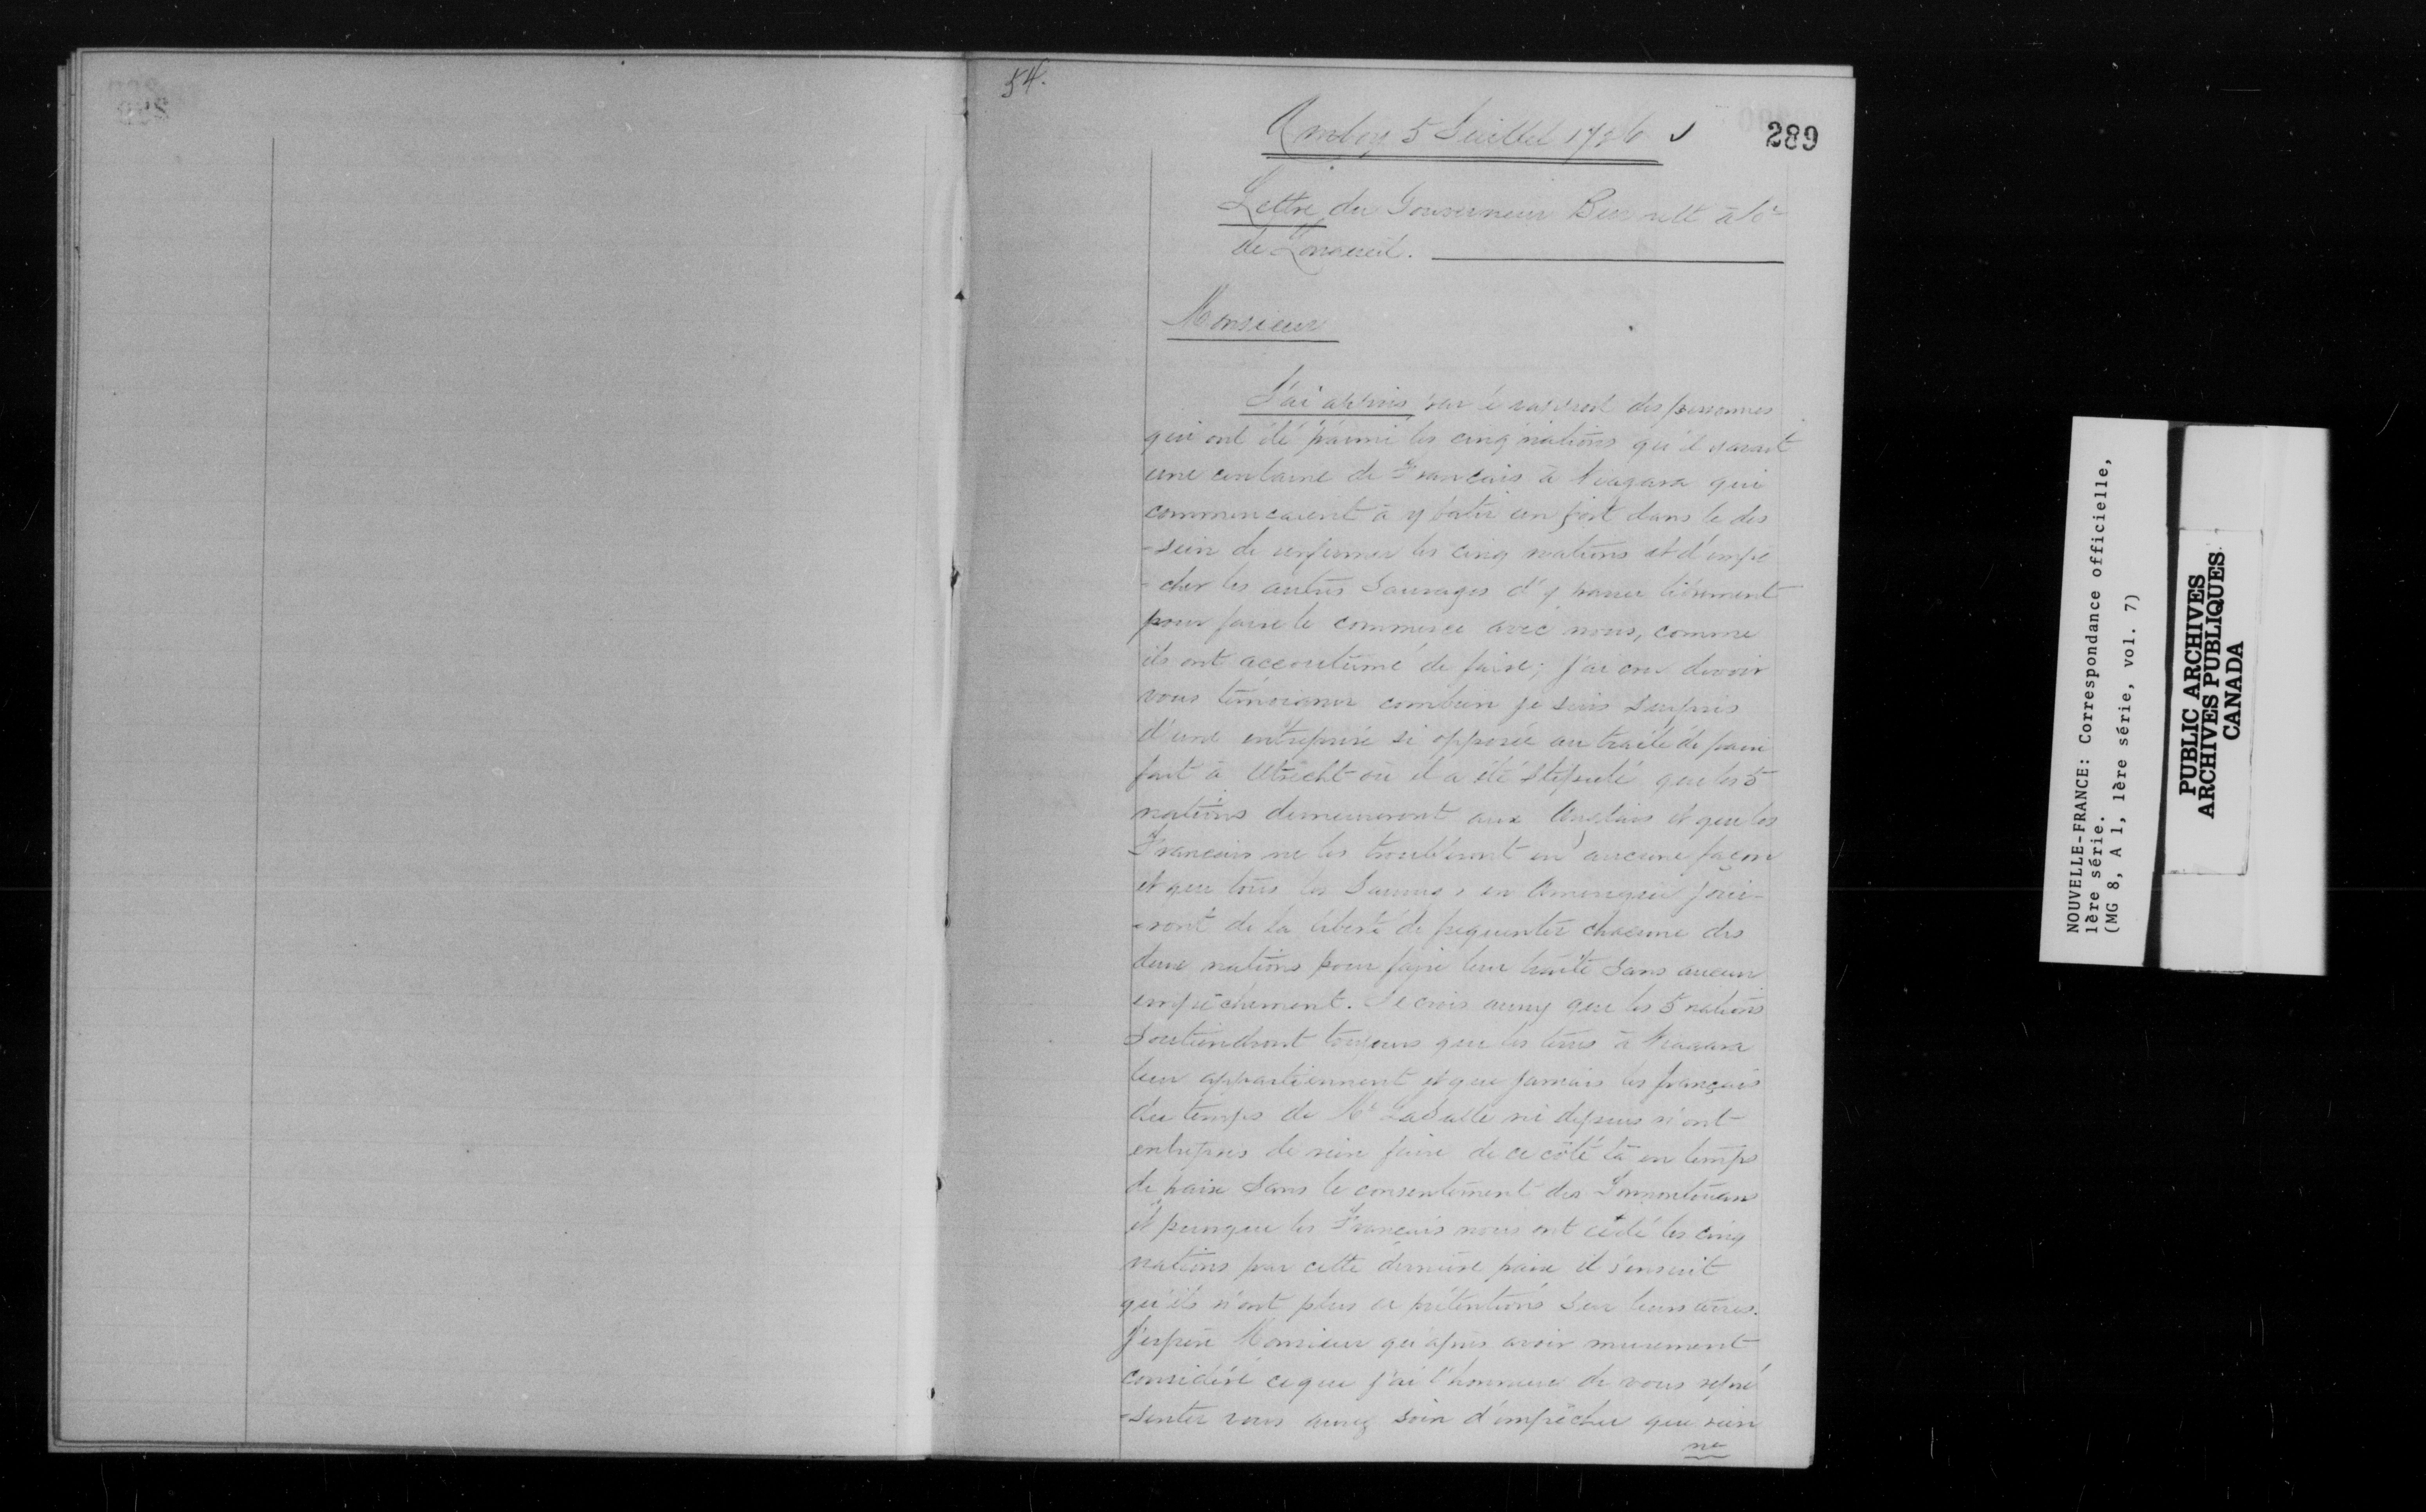 54.
289
Amboy 5 Juillet 1726
Lettre du Gouverneur Burnett à Mr
de Longueil.
Monsieur
J'ai appris par le rapport des personnes
qui ont été parmi les cinq nations qu'il y avait
une centaine de Francais à Niagara qui
commencaient à y batir un fort dans le des
-sein de renfermer les cinq nations et d'empe
-cher les autres Sauvages d'y passer librement
pour faire le commerce avec nous, comme
ils ont accoutumé de faire; j'ai cru devoir
vous témoigner combien je suis surpris
d'une entreprise si opposée au traité de paix
fait à Utrecht où il a été stipulé que les 5
nations demeureront aux Anglais et que les
Francais ne les troubleront en aucune façon
et que tous les Sauvages en Amerique joui-
-ront de la liberté de frequenter chacune des
deux nations pour faire leur traite sans aucun
empêchement. Je crois aussy que les 5 nations
soutiendront toujours que les terres à Niagara
leur appartiennent et que jamais les français
du temps de Mr LaSalle ni depuis n'ont
entrepris de rien faire de ce côté là en temps
de paix sans le consentement des Sonnontouans
et puisque les Francais nous ont cédé les cinq
nations par cette dernière paix il s'ensuit
qu'ils n'ont plus de prétentions sur leurs terres.
J'espère Monsieur qu'apres avoir murement
considéré ce que j'ai l'honneur de vous repré
-senter vous aurez soin d'empêcher que rien
ne
NOUVELLE-FRANCE: Correspondance officielle,
1ère série.
(MG 8, A 1, 1ère série, vol. 7)
PUBLIC ARCHIVES
ARCHIVES PUBLIQUES
CANADA